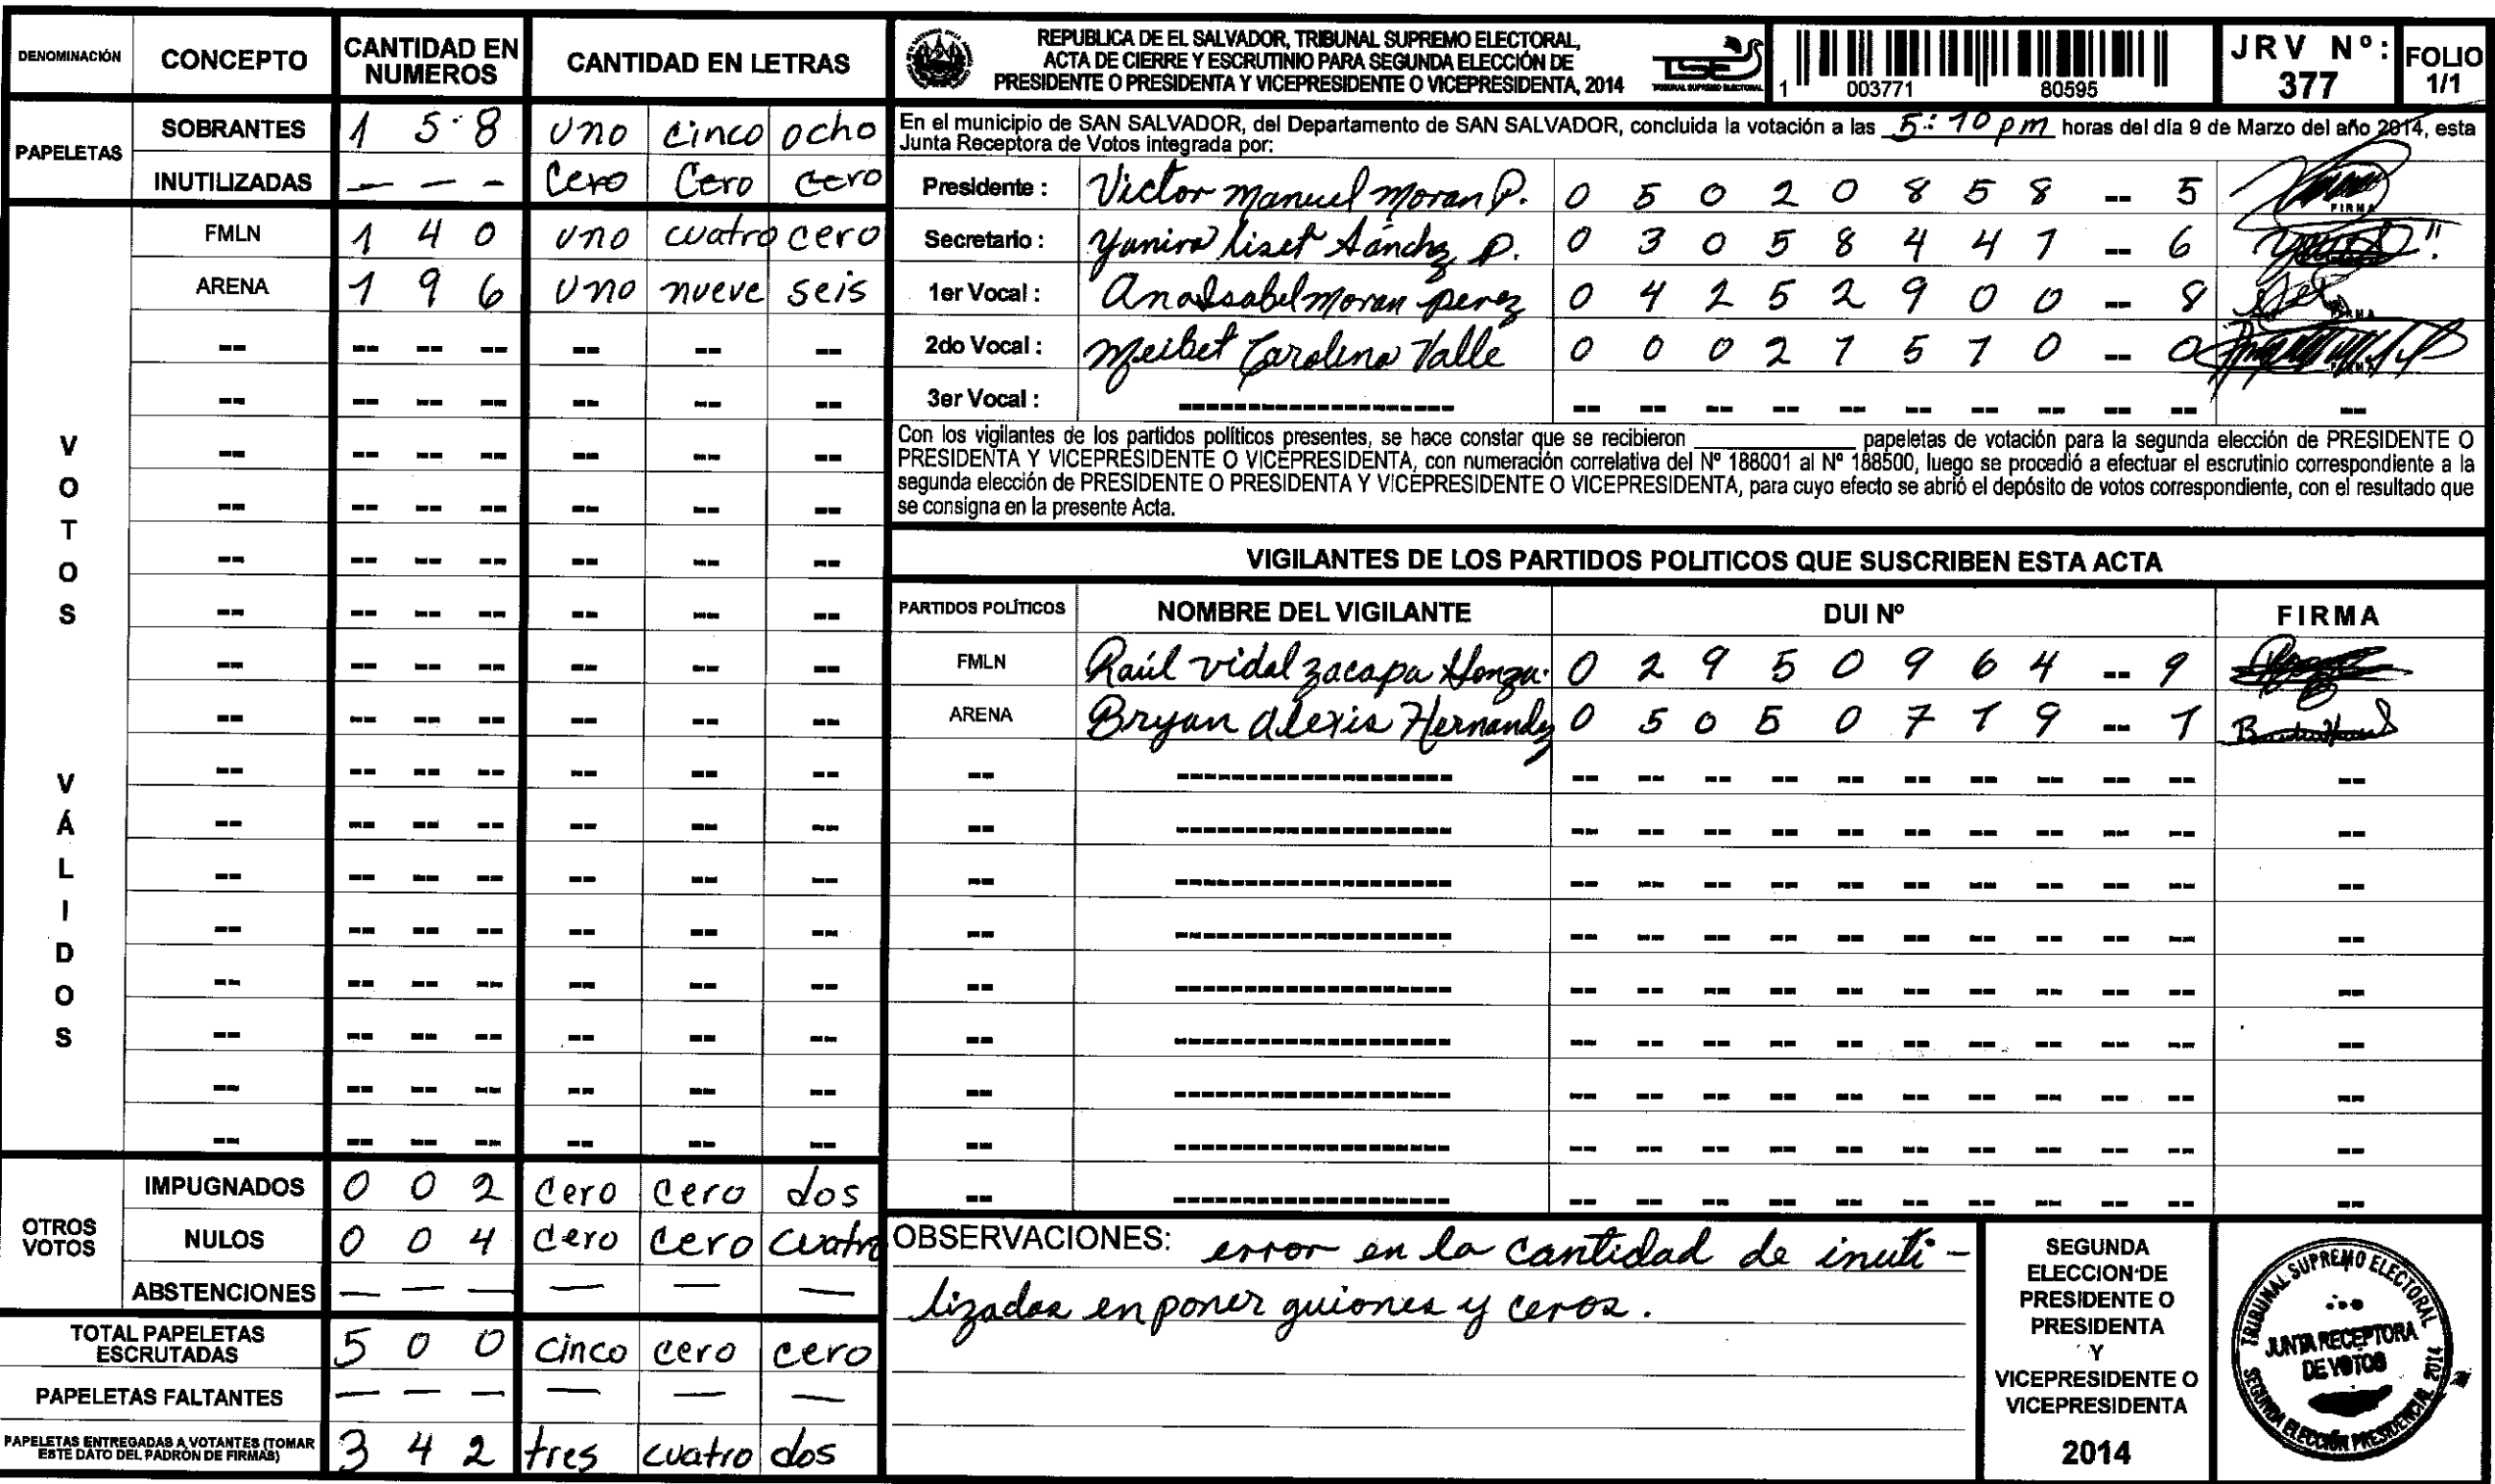 DENOMINACIÓN CONCEPTO CANTIDAD EN NUMEROS CANTIDAD EN LETRAS
PAPELETAS
SOBRANTES 1 5 8 uno cinco ocho
INUTILIZADAS — — — Cero Cero cero
VOTOS VÁLIDOS
FMLN 1 4 0 uno cuatro cero
ARENA 1 9 6 uno nueve seis
OTROS VOTOS
IMPUGNADOS 0 0 2 cero cero dos
NULOS 0 0 4 cero cero cuatro
ABSTENCIONES — — — — — —
TOTAL PAPELETAS ESCRUTADAS 5 0 0 cinco cero cero
PAPELETAS FALTANTES — — — — — —
PAPELETAS ENTREGADAS A VOTANTES (TOMAR ESTE DATO DEL PADRÓN DE FIRMAS) 3 4 2 tres cuatro dos
REPUBLICA DE EL SALVADOR, TRIBUNAL SUPREMO ELECTORAL,
ACTA DE CIERRE Y ESCRUTINIO PARA SEGUNDA ELECCIÓN DE
PRESIDENTE O PRESIDENTA Y VICEPRESIDENTE O VICEPRESIDENTA, 2014
TSE
TRIBUNAL SUPREMO ELECTORAL
1 003771 80595
JRV Nº: 377
FOLIO 1/1
En el municipio de SAN SALVADOR, del Departamento de SAN SALVADOR, concluida la votación a las 5:10 pm horas del día 9 de Marzo del año 2014, esta
Junta Receptora de Votos integrada por:
Presidente : Victor Manuel Moran P. 0 5 0 2 0 8 5 8 -- 5 FIRMA
Secretario : Yanira Liset Sánchz P. 0 3 0 5 8 4 4 1 -- 6
1er Vocal : Ana Isabel Moran perez 0 4 2 5 2 9 0 0 -- 8
2do Vocal : Meibet Carolina Valle 0 0 0 2 1 5 1 0 -- 0
3er Vocal :
Con los vigilantes de los partidos políticos presentes, se hace constar que se recibieron ________ papeletas de votación para la segunda elección de PRESIDENTE O
PRESIDENTA Y VICEPRESIDENTE O VICEPRESIDENTA, con numeración correlativa del Nº 188001 al Nº 188500, luego se procedió a efectuar el escrutinio correspondiente a la
segunda elección de PRESIDENTE O PRESIDENTA Y VICEPRESIDENTE O VICEPRESIDENTA, para cuyo efecto se abrió el depósito de votos correspondiente, con el resultado que
se consigna en la presente Acta.
VIGILANTES DE LOS PARTIDOS POLITICOS QUE SUSCRIBEN ESTA ACTA
PARTIDOS POLÍTICOS NOMBRE DEL VIGILANTE DUI Nº FIRMA
FMLN Raúl vidal zacapa Gonza. 0 2 9 5 0 9 6 4 -- 9
ARENA Bryan alexis Hernandez 0 5 0 5 0 7 1 9 -- 1
OBSERVACIONES: error en la cantidad de inuti-
lizadas en poner guiones y ceros.
SEGUNDA
ELECCION DE
PRESIDENTE O
PRESIDENTA
Y
VICEPRESIDENTE O
VICEPRESIDENTA
2014
TRIBUNAL SUPREMO ELECTORAL
JUNTA RECEPTORA
DE VOTOS
SEGUNDA ELECCIÓN PRESIDENCIAL 2014